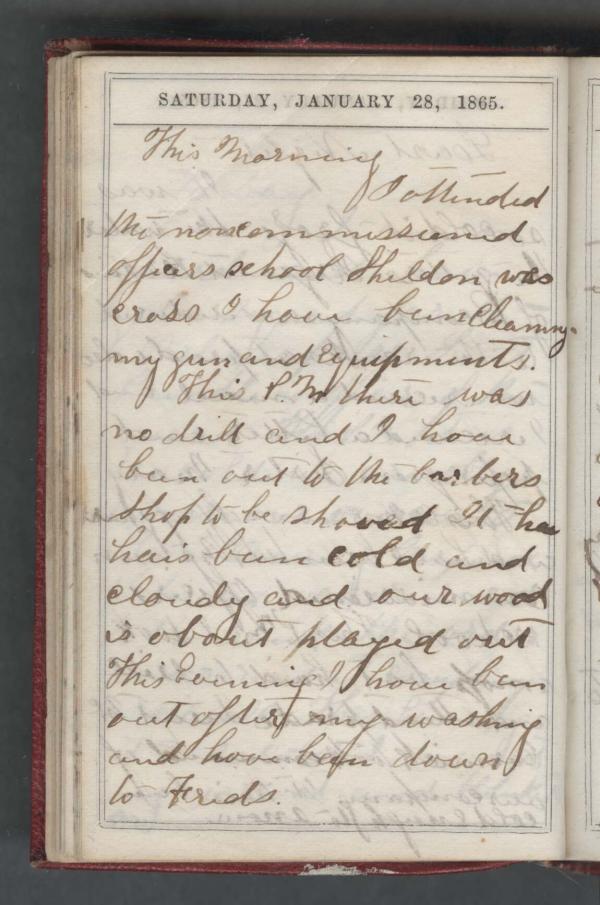 SATURDAY, JANUARY 28, 1865.
This Morning
I attended
the noncommissioned
officers school Sheldon was
cross I have bun Cleaning
my gun and Equipments.
This P.M there was
no drill and I have
bun out to the barbers
shop to be shaved It ha
hais bun cold and
cloudy and our wood
is about played out
This Evening I have bun
out after my washing
and have ben down
to Freds.